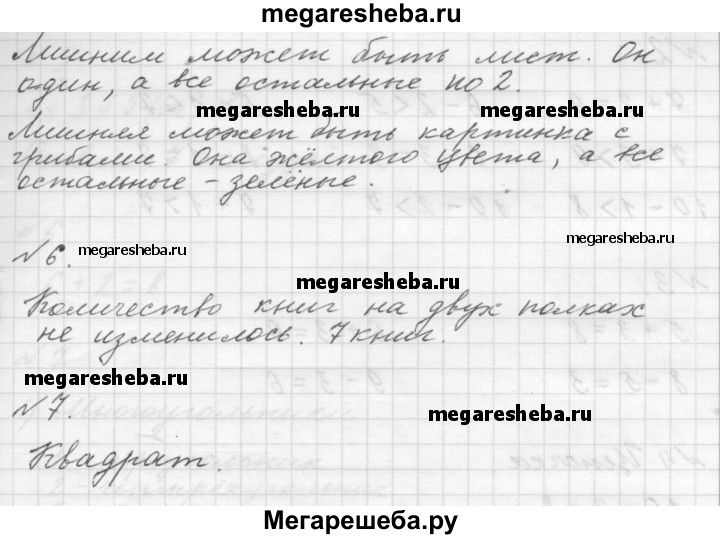 megaresheba.ru
Лишним может быть лист. Он
один, а все остальные по 2.
megaresheba.ru megaresheba.ru
Лишняя может быть картинка с
грибами. Она жёлтого цвета, а все
остальные – зелёные.
megaresheba.ru
№6. megaresheba.ru
megaresheba.ru
Количество книг на двух полках
не изменилось. 7 книг.
megaresheba.ru
№7.
megaresheba.ru
Квадрат.
Мегарешеба.ру